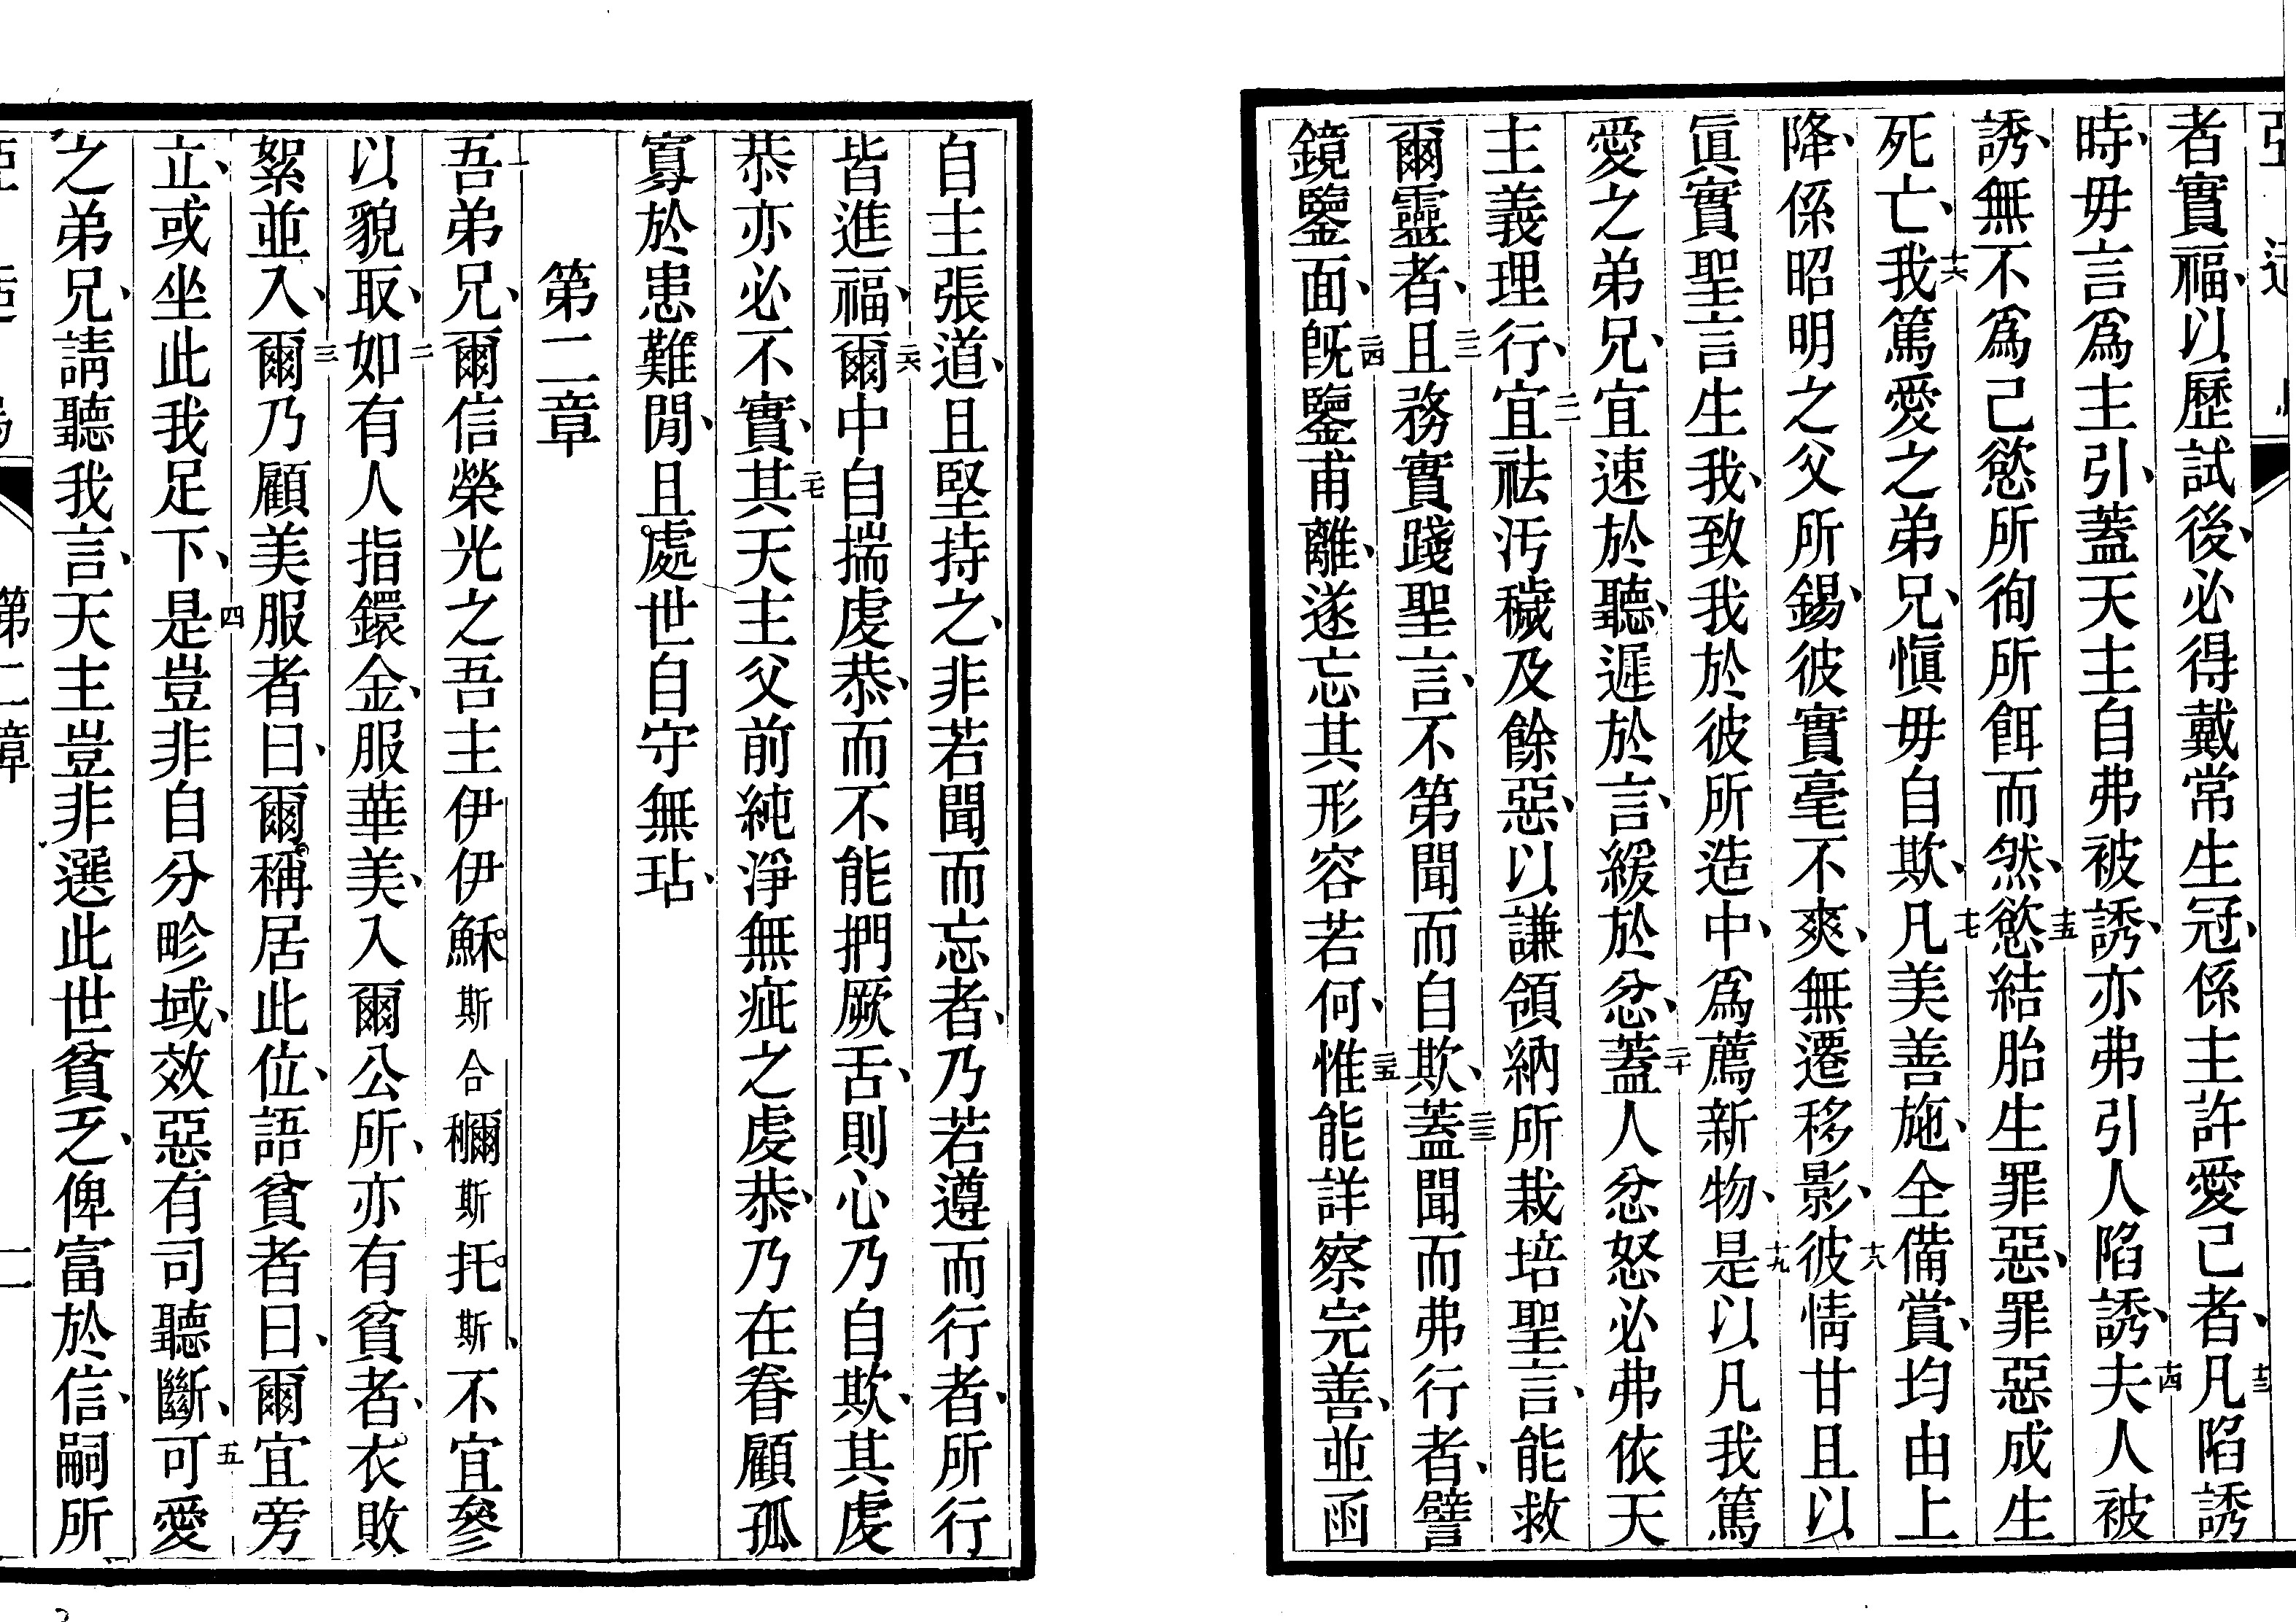 者實福、以歷試後、必得戴常生冠、係主許愛己者、十三凡陷誘
時、毋言爲主引、蓋天主自弗被誘、亦弗引人陷誘、十四夫人被
誘、無不爲己慾所徇所餌而然、十五慾結胎生罪惡、罪惡成生
死亡、十六我篤愛之弟兄、愼毋自欺、十七凡美善施、全備賞、均由上
降、係昭明之父所錫、彼實毫不爽、無遷移影、十八彼情甘且以
眞實聖言生我、致我於彼所造中、爲薦新物、十九是以凡我篤
愛之弟兄、宜速於聽、遲於言、緩於忿、二十蓋人忿怒必弗依天
主義理行、二一宜祛汚穢及餘惡、以謙領納所栽培聖言、能救
爾靈者、二二且務實踐聖言、不第聞而自欺、二三蓋聞而弗行者、譬
鏡鑒面、二四旣鑒甫離、遂忘其形容若何、二五惟能詳察完善、並函
自主張道、且堅持之、非若聞而忘者、乃若遵而行者、所行
皆進福、二六爾中自揣虔恭、而不能捫厥舌、則心乃自欺、其虔
恭亦必不實、二七其天主父前純淨無疵之虔恭、乃在眷顧孤
寡於患難閒、且處世自守無玷、
第二章
一吾弟兄、爾信榮光之吾主伊伊穌斯合穪斯托斯、不宜參
以貌取、二如有人指鐶金、服華美、入爾公所、亦有貧者、衣敗
絮並入、三爾乃顧美服者曰、爾稱居此位、語貧者曰、爾宜旁
立、或坐此我足下、四是豈非自分畛域、效惡有司聽斷、五可愛
之弟兄、請聽我言、天主豈非選此世貧乏、俾富於信、嗣所
第二章
二